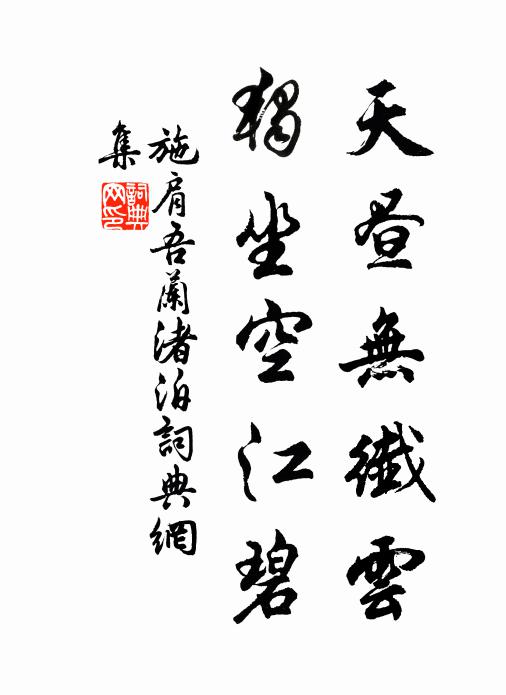 天昼無纖雲
獨坐空江碧
施肩吾蘭渚泊詞典網
集
詞典
网印